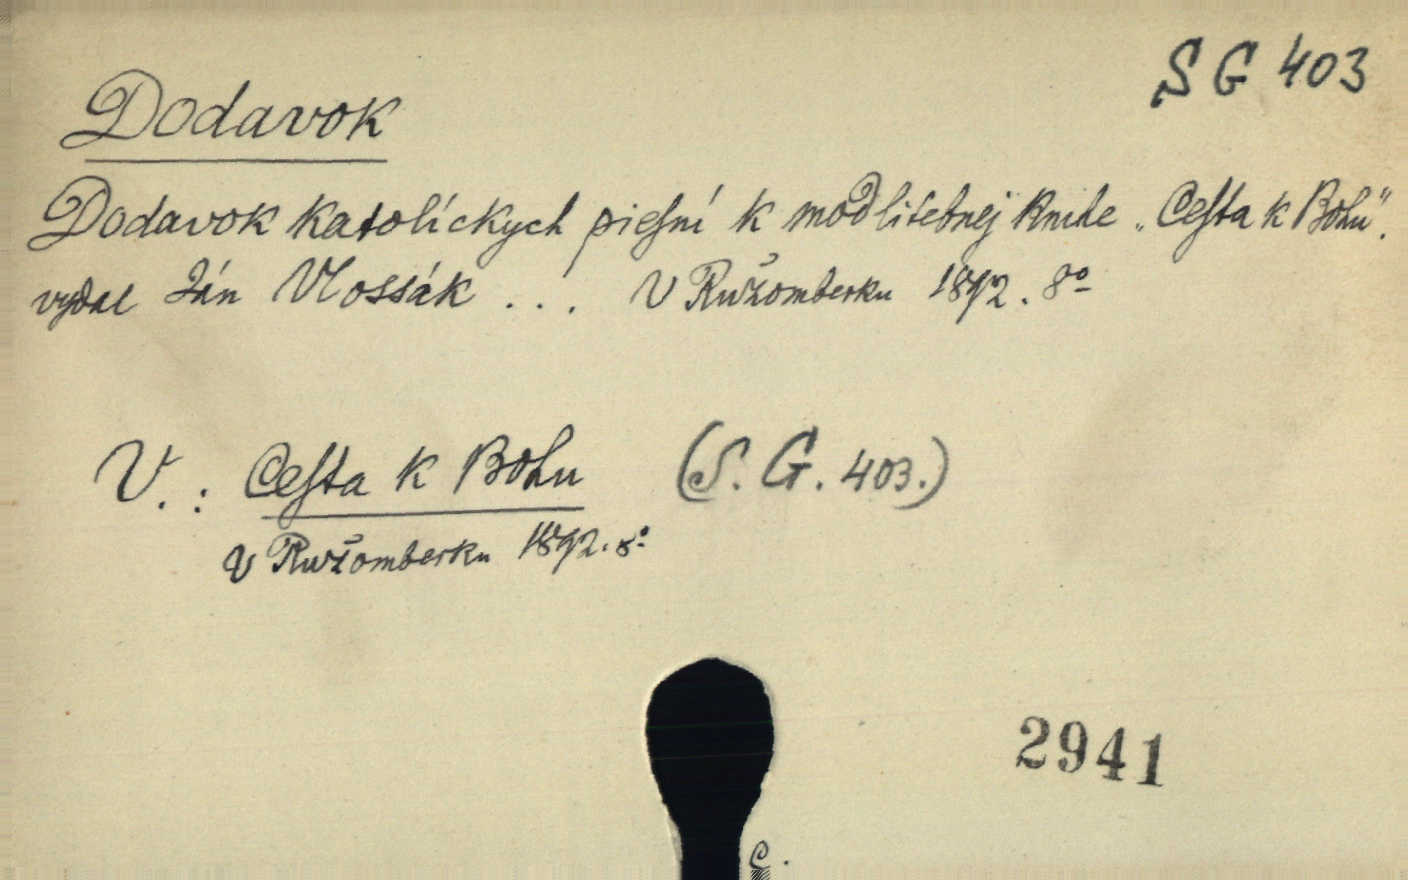 SG 403
Dodavok
Dodavok katolíckych piesní k modlitebnej knihe „Cesta k Bohu".
vydal Ján Vlossák ... V Ružomberku 1892. 8º
V.: Cesta k Bohu (S. G. 403.)
V Ružomberku 1892. 8º
2941
C.